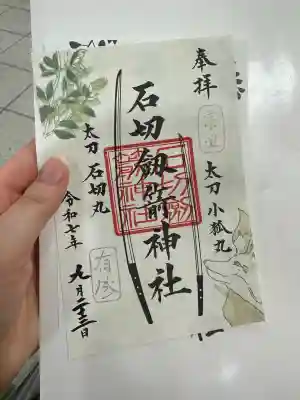 奉拝
太刀 小狐丸
石切劔箭神社
太刀 石切丸
有成
令和七年
九月二十三日